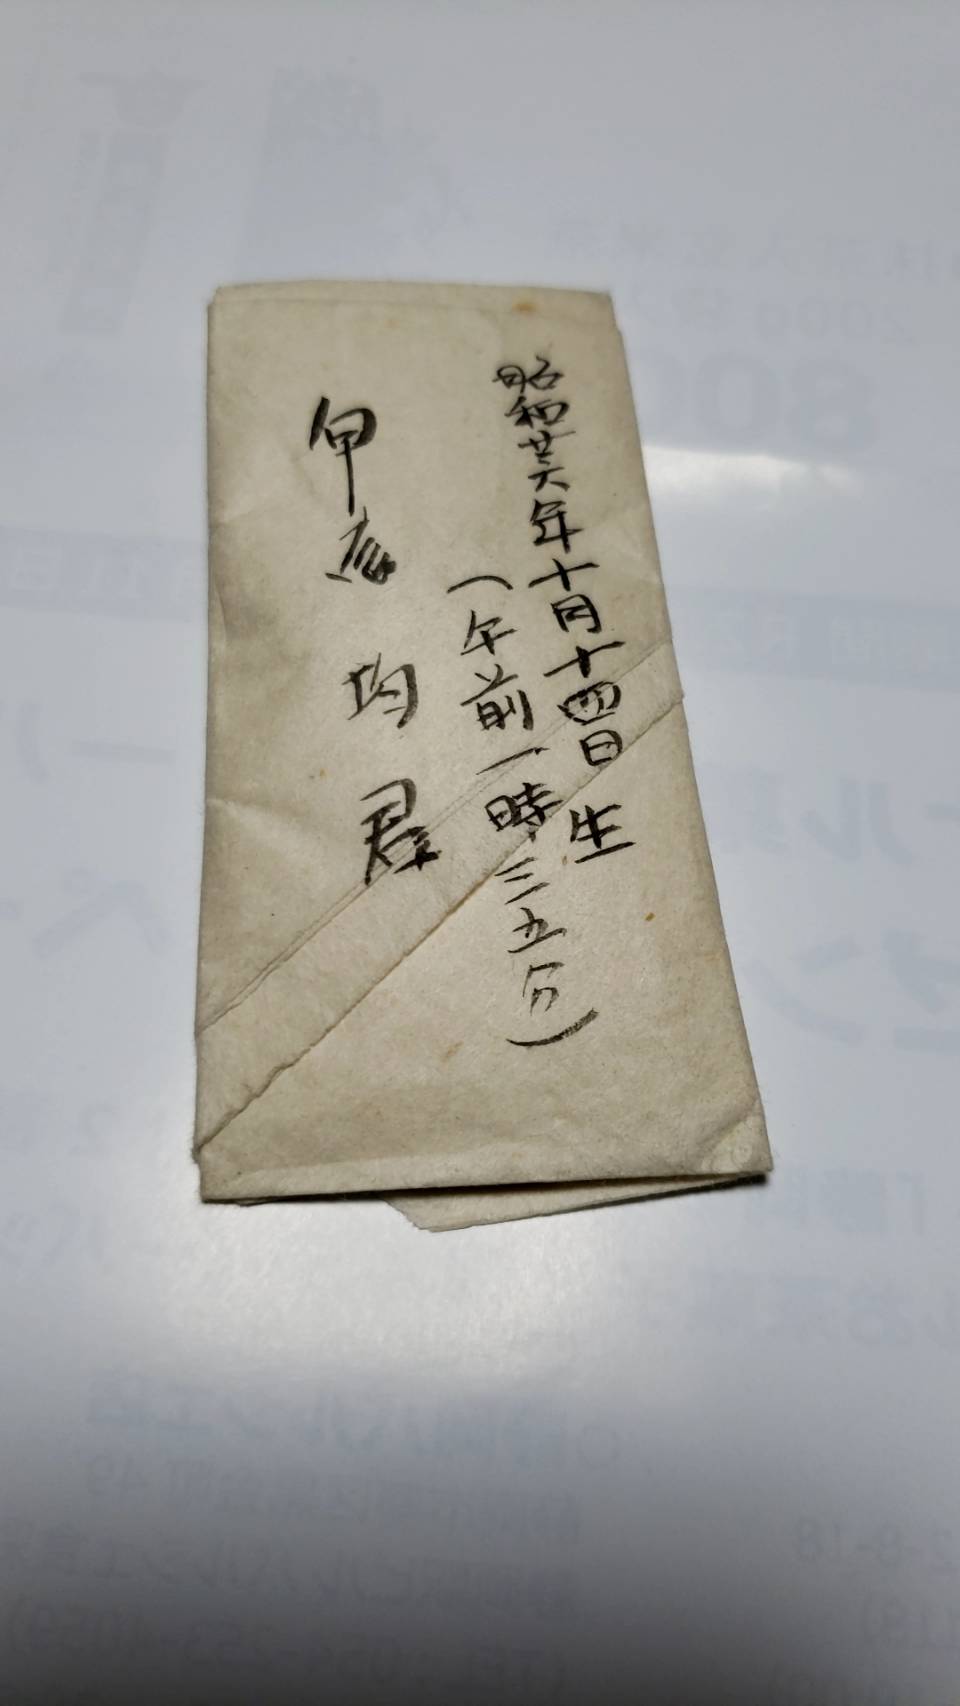 昭和廿六年十月十四日生
(午前一時三五分)
甲斐均君